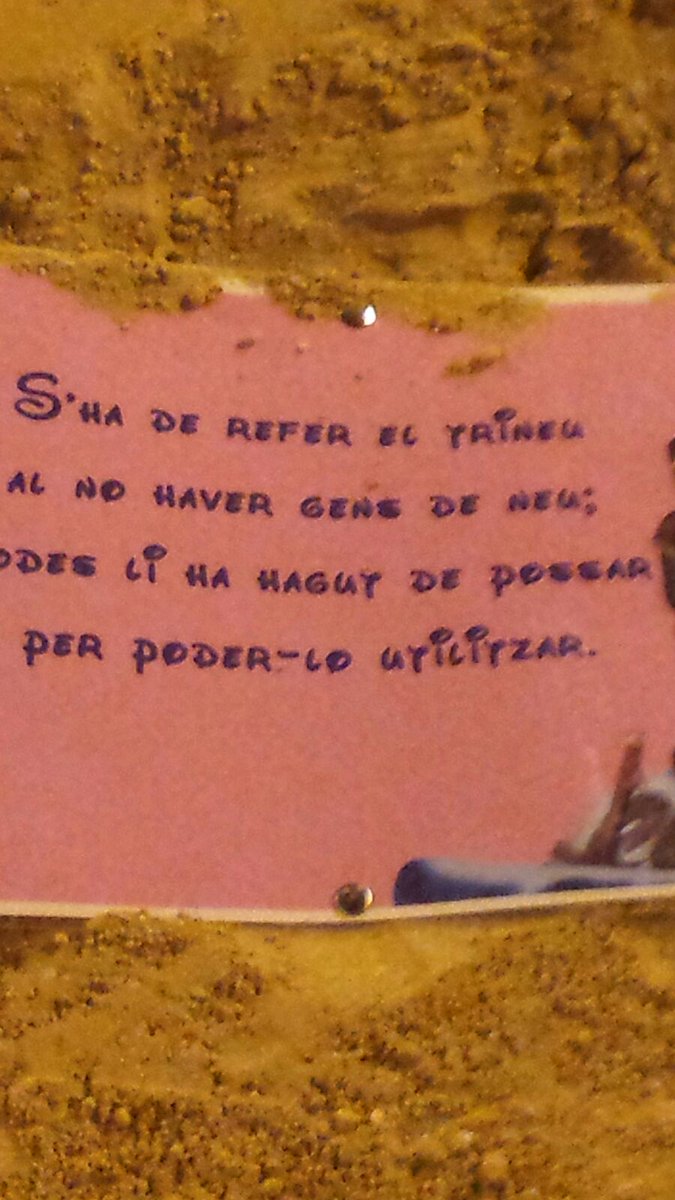 S'ha de refer el trineu
al no haver gens de neu;
odes li ha hagut de possar
per poder-lo utilitzar.